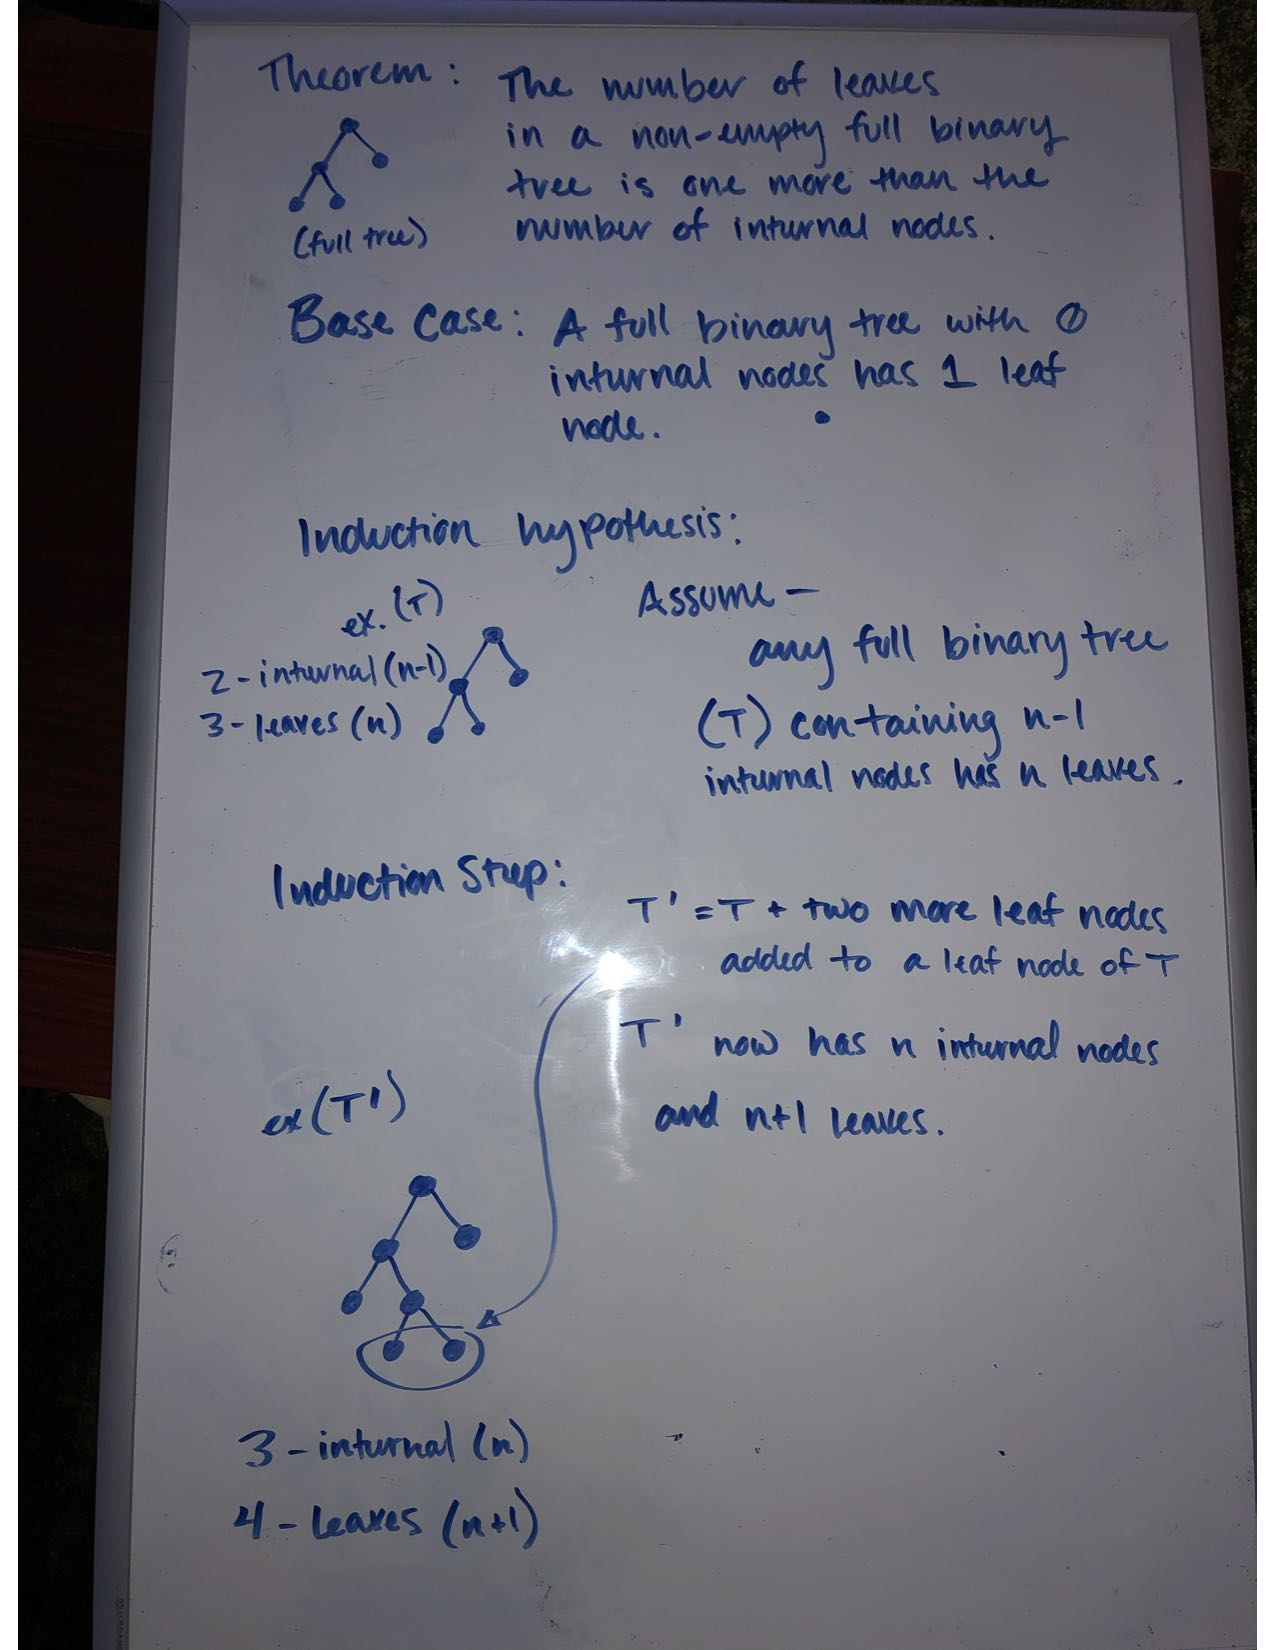 Theorem: The number of leaves
in a non-empty full binary
tree is one more than the
number of internal nodes.
(full tree)
Base Case: A full binary tree with 0
internal nodes has 1 leaf
node.
Induction hypothesis:
ex. (T)
2 - internal (n-1)
3 - leaves (n)
Assume -
any full binary tree
(T) containing n-1
internal nodes has n leaves.
Induction Step:
T' = T + two more leaf nodes
added to a leaf node of T
T' now has n internal nodes
and n+1 leaves.
ex (T')
3 - internal (n)
4 - leaves (n+1)